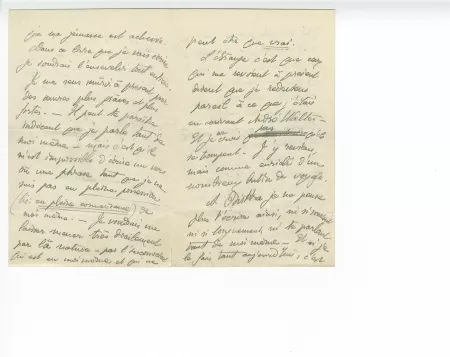 que ma jeunesse est achevée.
Dans ce livre que je vais écrire
je voudrais l'ensevelir tout entière.
Je me sens mûrir à présent pour
des œuvres plus graves et plus
fortes. — Il peut te paraître
indécent que je parle tant de
moi même — mais c'est qu'il
m'est impossible d'écrire un vers
ou une phrase tant que je ne
suis pas en pleine possession
(ou en pleine connaissance) de
moi même. — Je voudrais me
laisser mener très docilement
par la nature — par l'inconscient
qui est en moi même et qui ne
peut être que vrai.
L'étrange c'est que ceux
qui me revoient à présent
disent que je redeviens
pareil à ce que j'étais
en écrivant André Walter.
Et je crois
se trompent. J'y reviens,
mais comme enrichi d'un
nombreux butin de voyage.
À je ne peux
plus l'écrire ainsi, ni si
ni si longuement ni te parler
tant de moi même — Et si je
le fais tant aujourd'hui, c'est